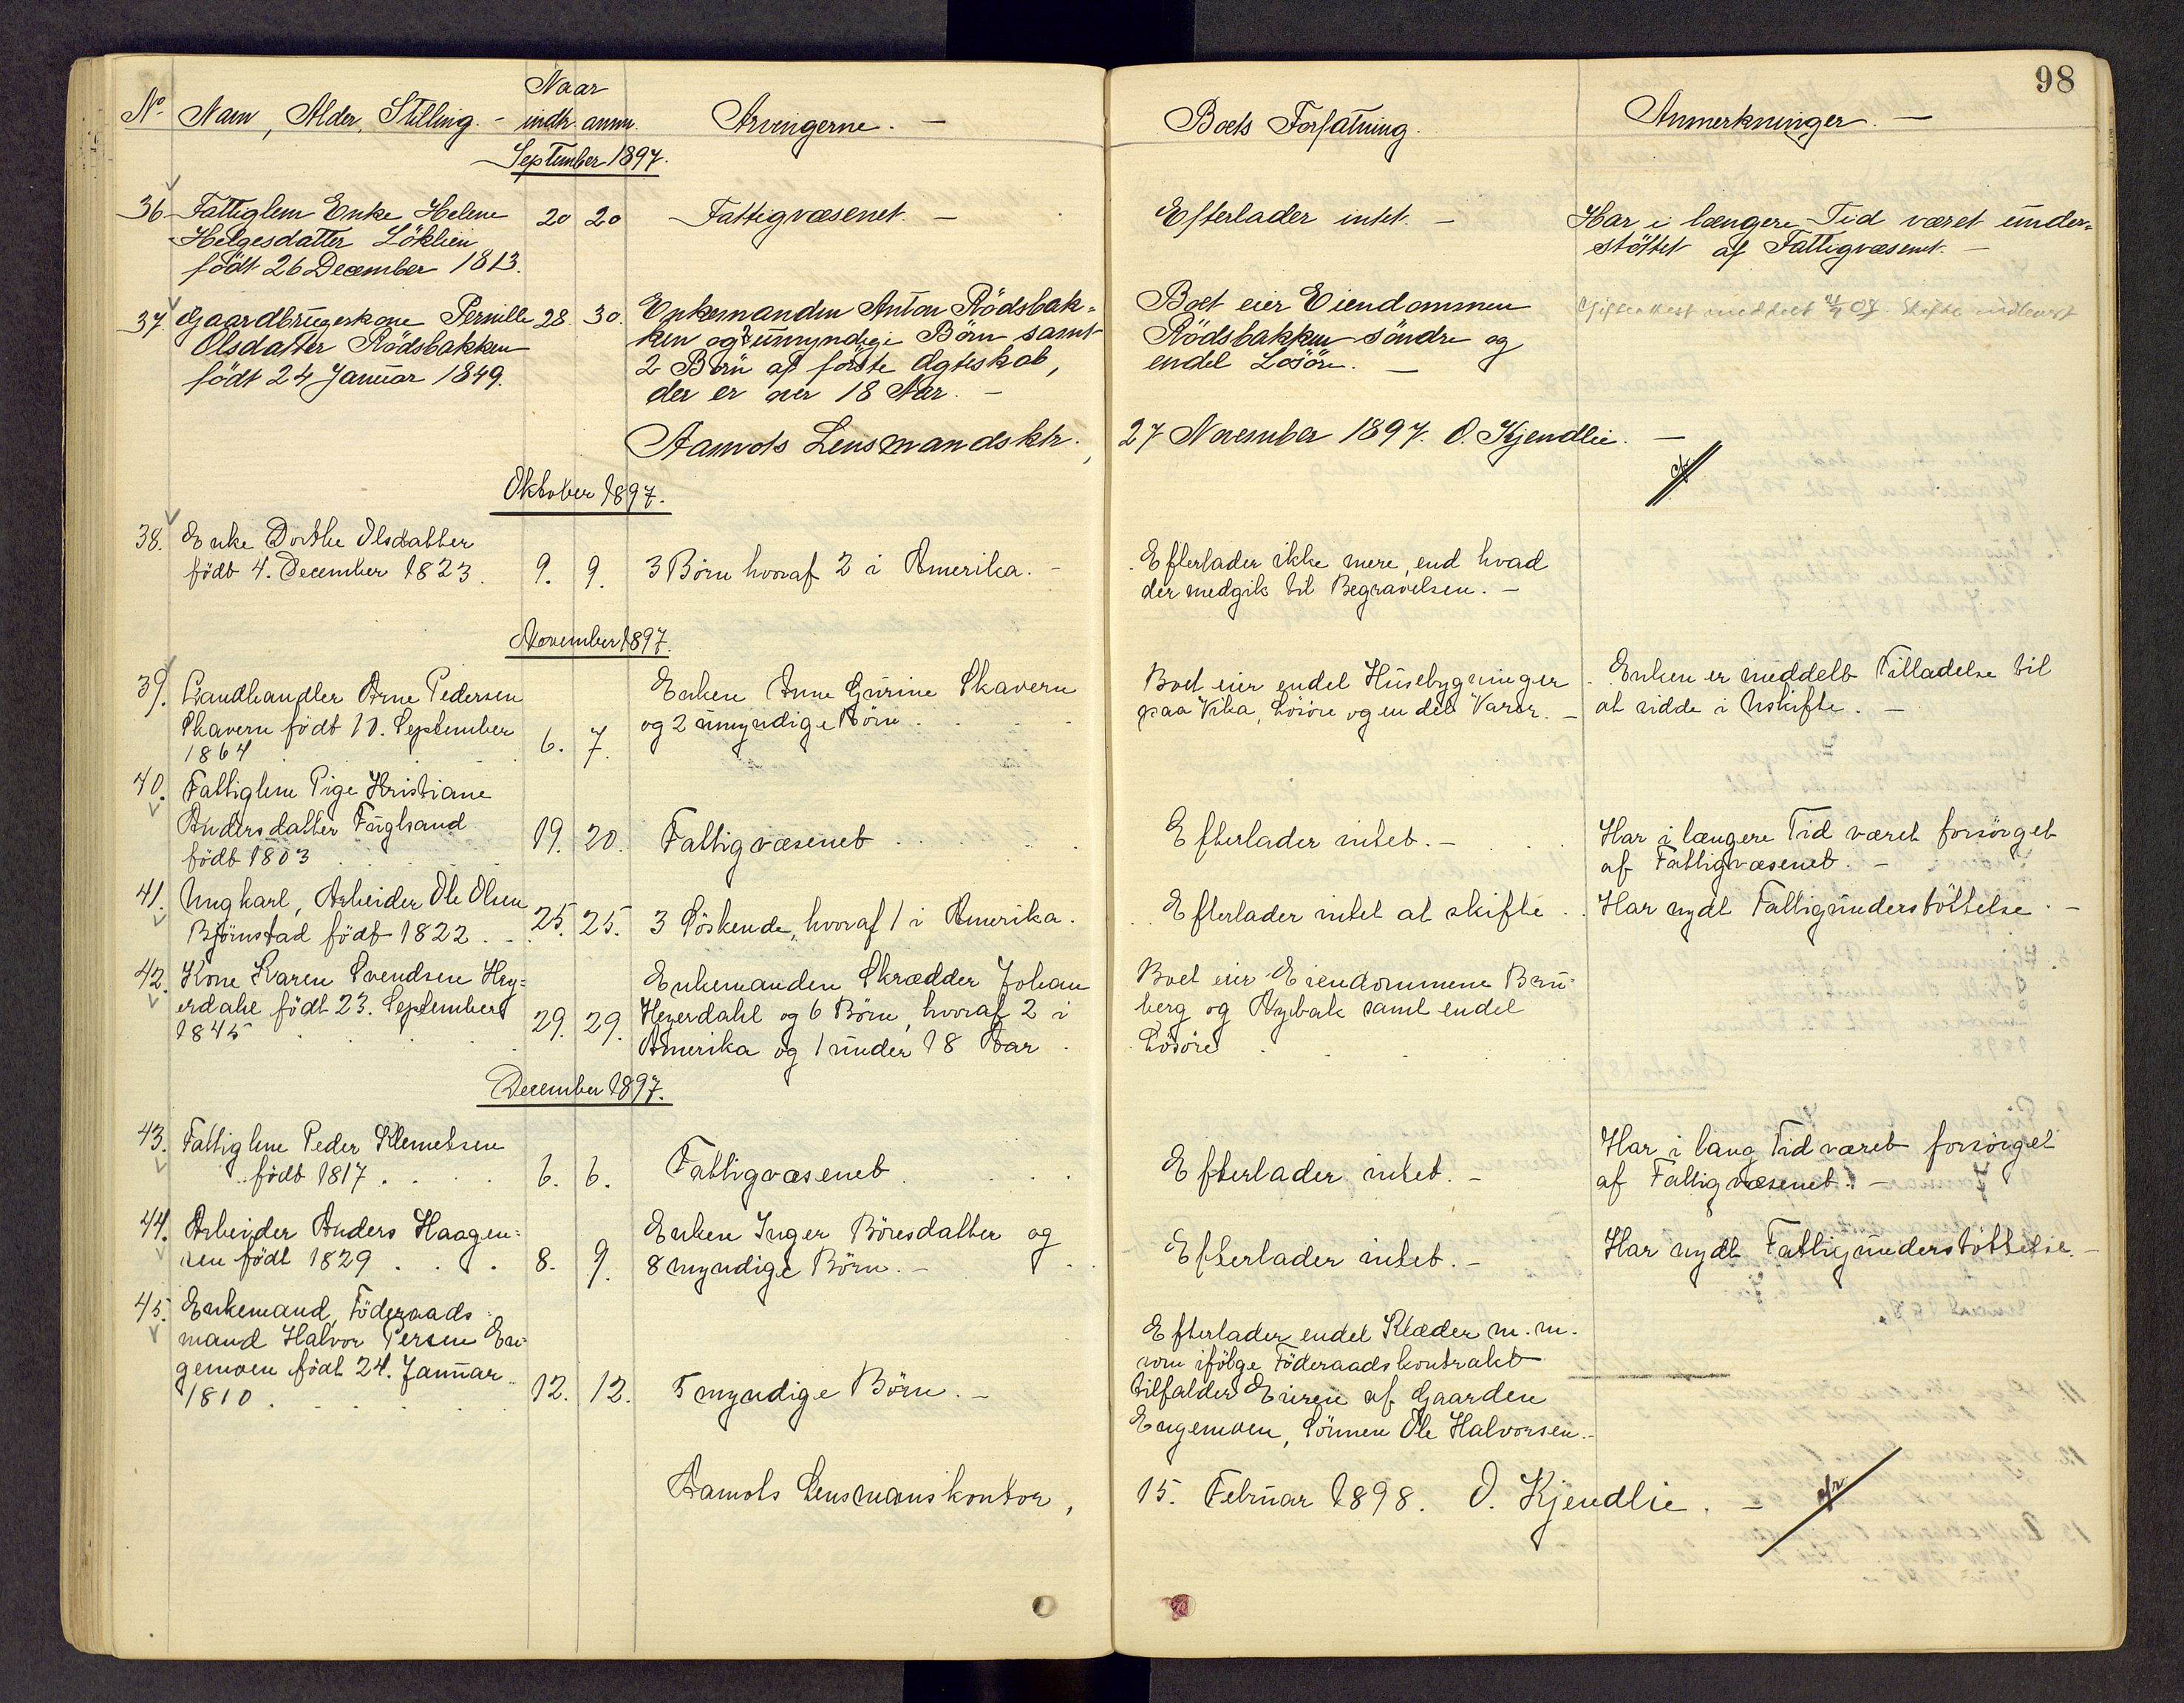 98
Naar
No. Navn, Alder, Stilling. - indtr. anm. Arvingerne. - Boets Forfatning. Anmerkninger. -
September 1897.
36 Fattiglem Enke Helene 20 20 Fattigvæsenet. - Efterlader intet. - Har i længere Tid været under-
Helgesdatter Löklien støttet af Fattigvæsenet. -
född 26 December 1813.
37. Gaardbrugerkone Pernille 28 30. Enkemanden Anton Rödsbak- Boet eier Eiendommen
Olsdatter Rödsbakken ken og 2 umyndige Börn samt Rödsbakken söndre og
född 24 Januar 1849. 2 Börn af förste Ægteskab, endel Lösöre. -
der er over 18 Aar. -
Aamots Lensmandsktr., 27 November 1897. O. Kjendlie. -
Oktober 1897.
38. Enke Dorthe Olsdatter
född 4. December 1823. 9. 9. 3 Börn hvoraf 2 i Amerika. - Efterlader ikke mere, end hvad
der medgik til Begravelsen. -
November 1897.
39. Landhandler Arne Pedersen Enken Anne Gurine Skavern Boet eier endel Husebygninger Enken er meddelt Tilladelse til
Skavern född 10. September og 2 umyndige Börn. paa Vika, Lösöre og en del Varer. - at sidde i Uskifte. -
1864 6. 7.
40. Fattiglem Pige Kristiane
Andersdatter Fuglsand 19. 20. Fattigvæsenet Efterlader intet. - Har i længere Tid været forsörget
född 1803 af Fattigvæsenet. -
41. Ungkarl, Arbeider Ole Olsen 25. 25. 3 Söskende, hvoraf 1 i Amerika. Efterlader intet at skifte. Har nydt Fattigunderstöttelse. -
Björnstad född 1822.
42. Kone Karen Svendsen Hey- Enkemanden Skrædder Johan Boet eier Eiendommene Bru-
erdahl född 23. September 29. 29. Heyerdahl og 6 Börn, hvoraf 2 i berg og Nybak samt endel
1845 Amerika og 1 under 18 Aar. Lösöre
December 1897.
43. Fattiglem Peder Klemetsen Har i lang Tid været forsörget
född 1817. 6. 6. Fattigvæsenet Efterlader intet. - af Fattigvæsenet. -
44. Arbeider Anders Haagen- Enken Inger Böresdatter og Har nydt Fattigunderstöttelse. -
sen född 1829 8. 9. 8 myndige Börn. - Efterlader intet. -
45. Enkemand, Föderaads- Efterlader endel Klæder m. m.
mand Halvor Persen En- som ifölge Föderaadskontrakt
gemoen född 24. Januar tilfalder Eieren af Gaarden
1810. 12. 12. 5 myndige Börn. - Engemoen, Sönnen Ole Halvorsen. -
Aamots Lensmanskontor, 15. Februar 1898. O. Kjendlie. -